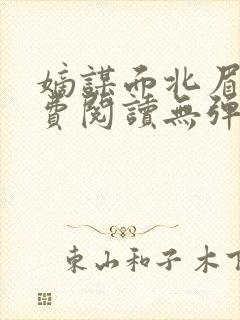 嫡謀而北眉
費閱讀無彈
東山和子木下